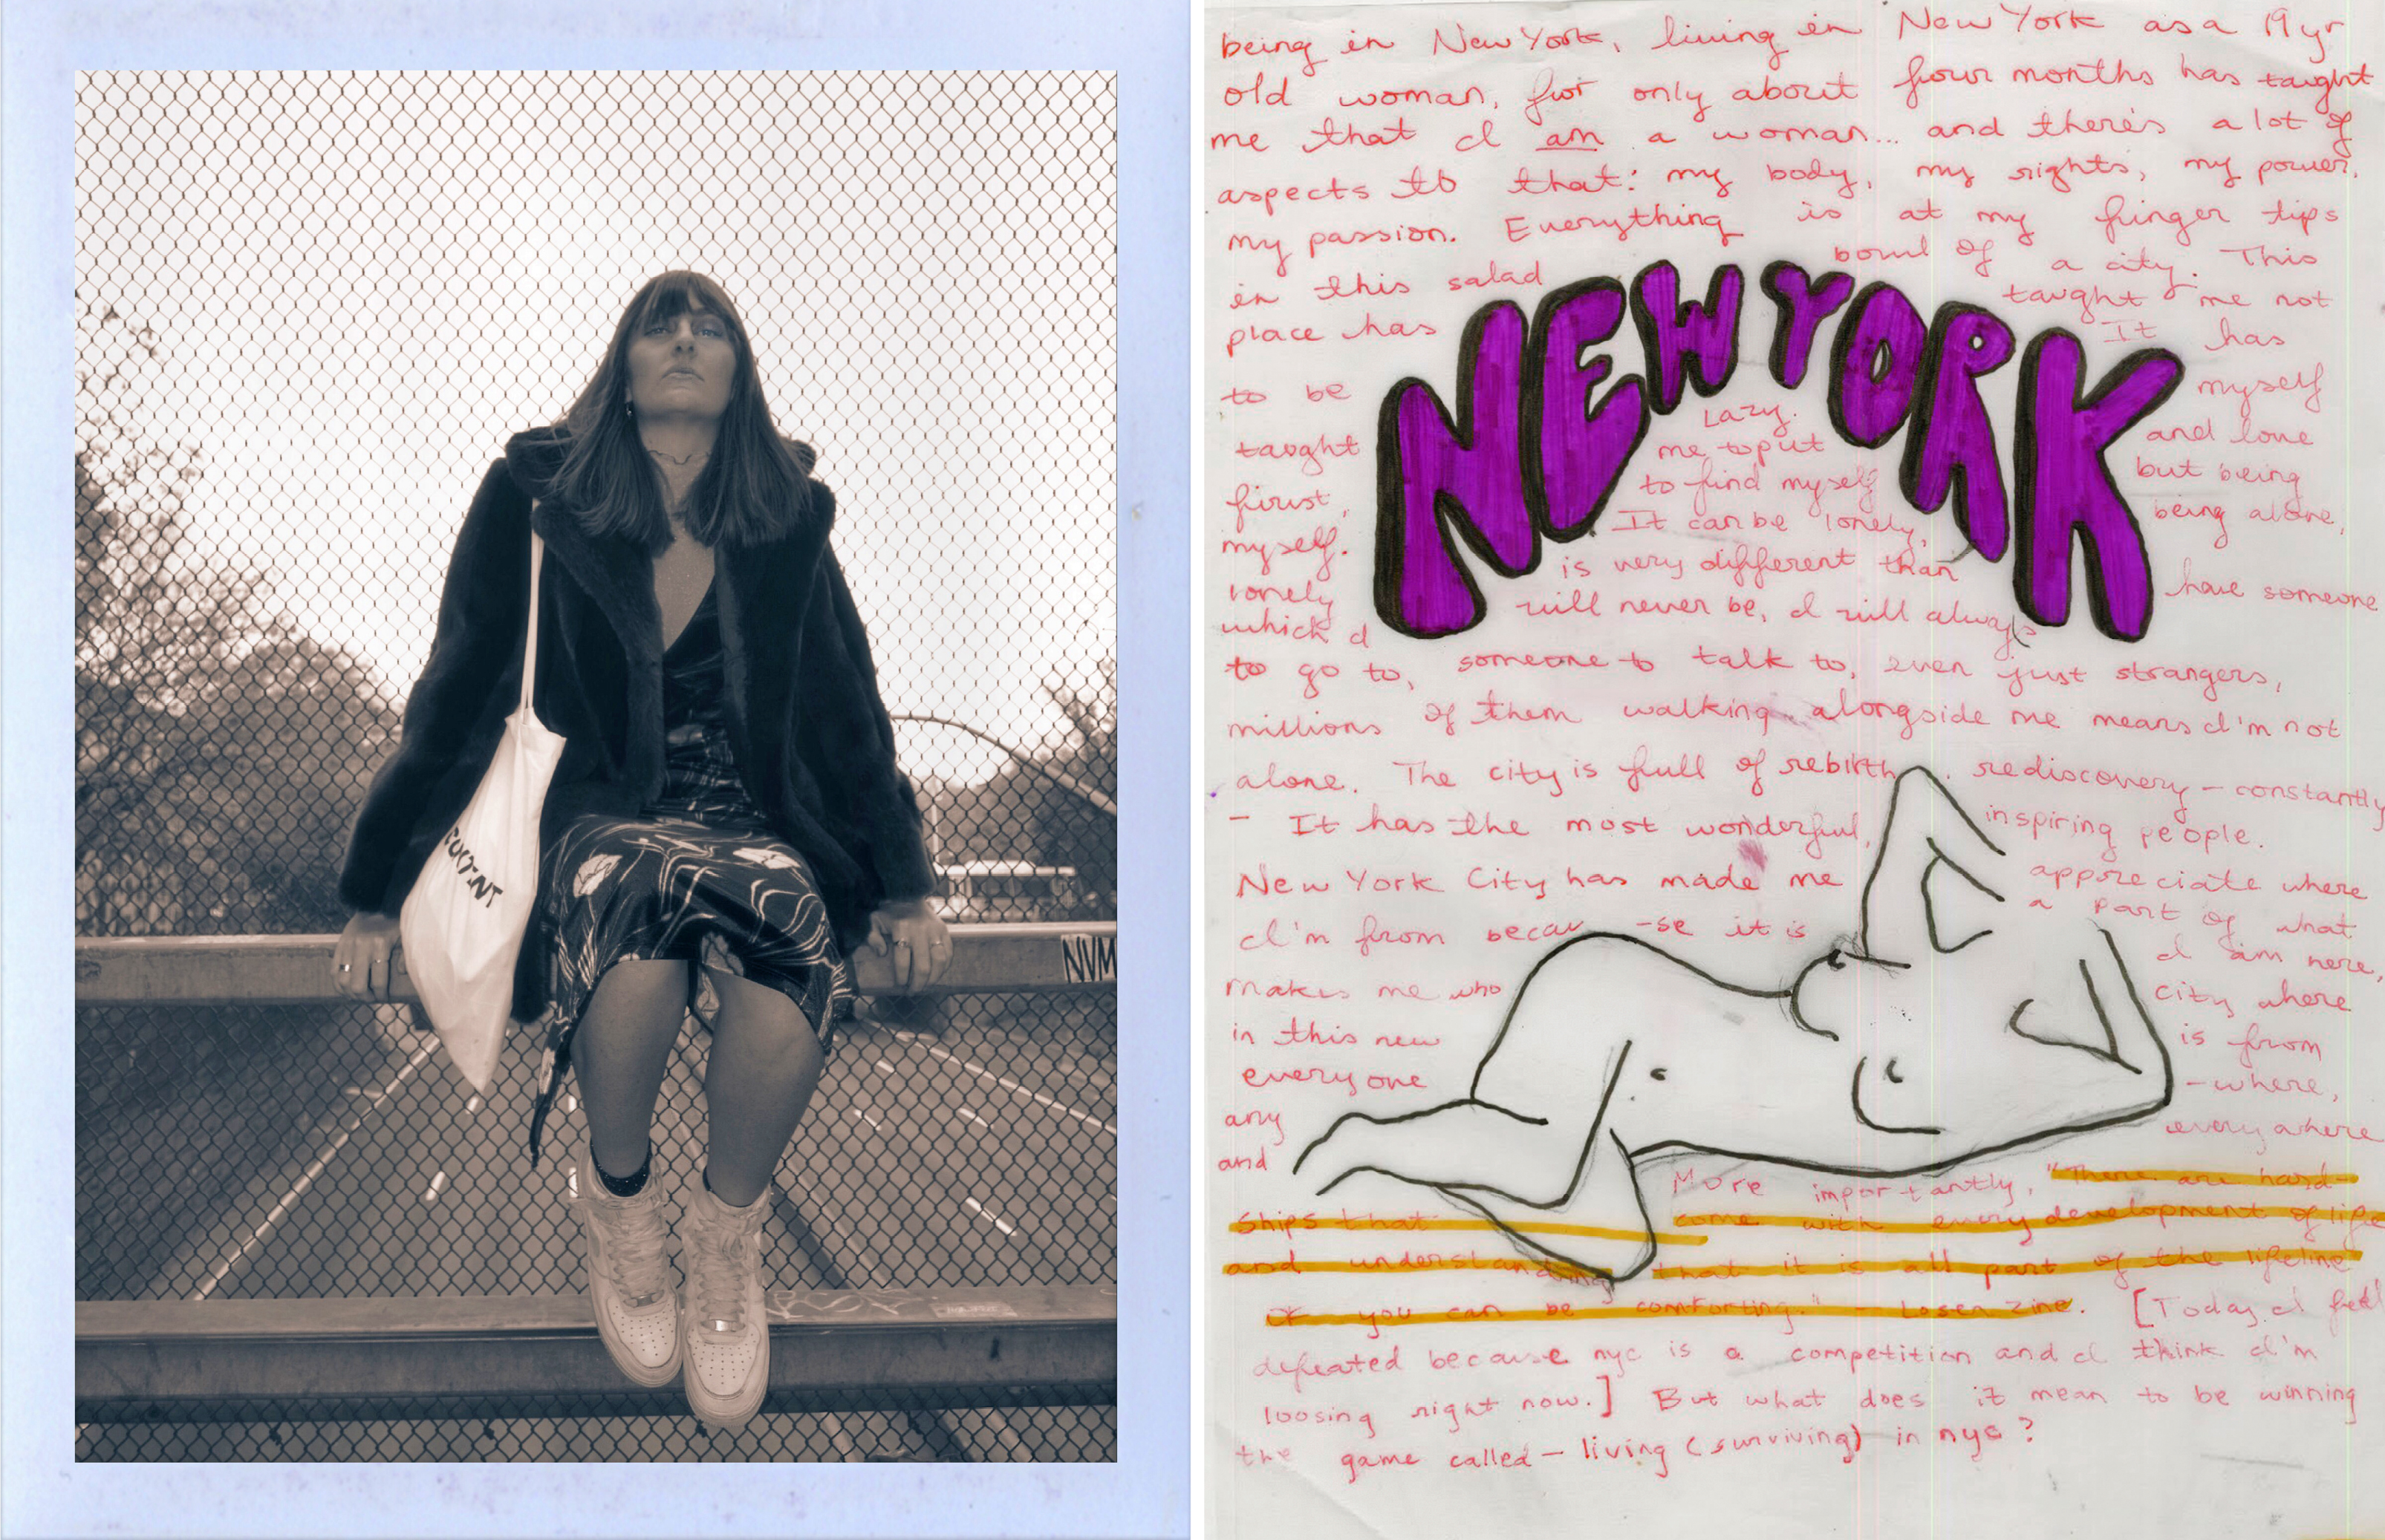 NVM
being in New York, living in New York as a 19 yr
old woman, for only about four months has taught
me that I am a woman... and there's a lot of
aspects to that: my body, my rights, my power,
my passion. Everything is at my finger tips
in this salad bowl of a city. This
place has taught me not
to be Lazy. It has
taught me to put myself
first, to find myself and love
myself. It can be lonely, but being
lonely is very different than being alone,
which I will never be, I will always have someone
to go to, someone to talk to, even just strangers,
millions of them walking alongside me means I'm not
alone. The city is full of rebirth, rediscovery - constantly
- It has the most wonderful, inspiring people.
New York City has made me appreciate where
I'm from becau-se it is a part of what
makes me who I am here,
in this new city where
everyone is from
any-where,
and everywhere
More importantly, "There are hard-
ships that come with every development of life
and understanding that it is all part of the lifeline
you can be comforting." - Loser Zine. [Today I feel
defeated because nyc is a competition and I think I'm
loosing right now.] But what does it mean to be winning
the game called - living (surviving) in nyc?
NEW YORK